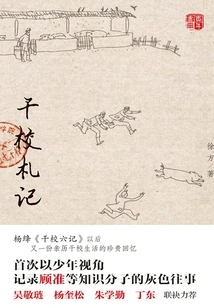 干校札记
徐方 著
杨绛《干校六记》以后
又一份亲历干校生活的珍贵回忆
首次以少年视角
记录顾准等知识分子的灰色往事
吴敬琏 杨奎松 朱学勤 丁东 联袂力荐